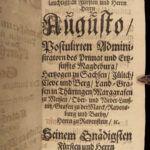 Fürsten und Herrn
Herrn
Augusto/
Postulirten Admini-
stratorn des Primat und Ertz-
stiffts Magdeburg/
Hertzogen zu Sachsen/Jülich/
Cleve und Berg/Land-Gra-
fen in Thüringen/Marggrafen
zu Meißen/Ober- und Nieder-Lauß-
nitz/Grafen zu der Marck/Ravens-
burg und Barby/
Herrn zu Ravenstein/
Seinem Gnädigsten
Fürsten und Herrn